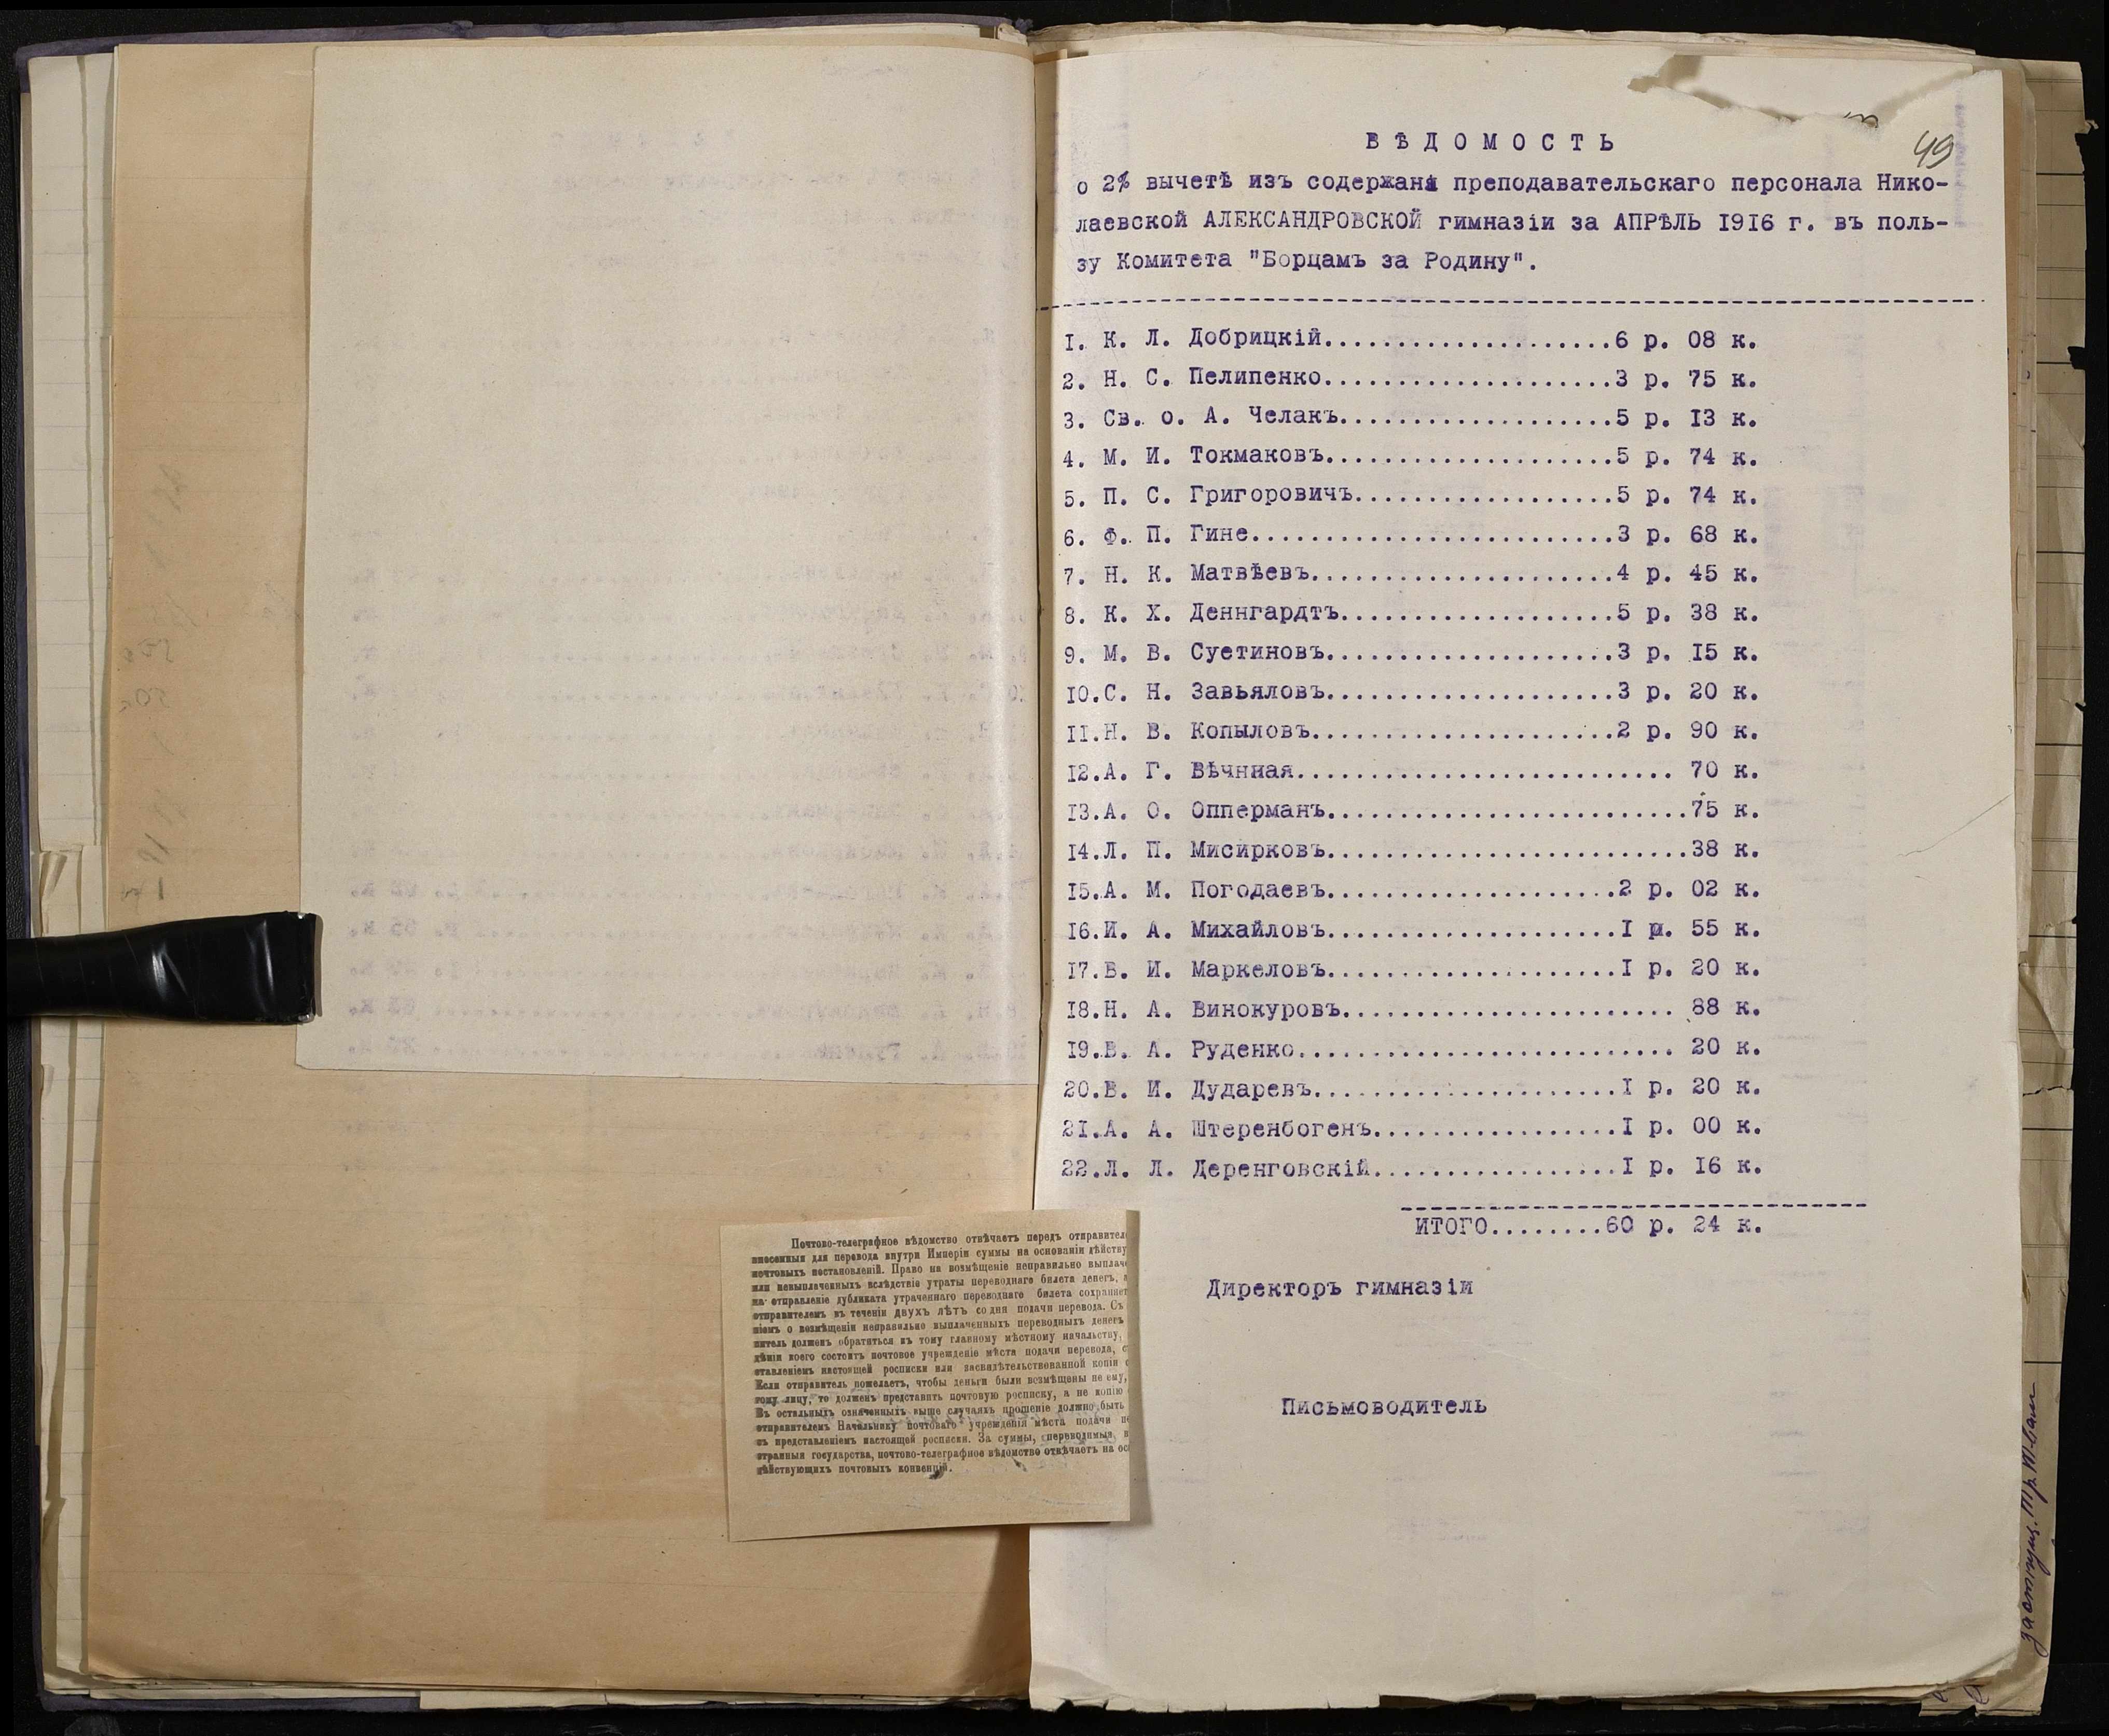 49
ВѢДОМОСТЬ
о 2% вычетѣ изъ содержанi преподавательскаго персонала Нико-
лаевской АЛЕКСАНДРОВСКОЙ гимназіи за АПРѢЛЬ 1916 г. въ поль-
зу Комитета "Борцамъ за Родину".
1. К. Л. Добрицкій....................6 р. 08 к.
2. Н. С. Пелипенко....................3 р. 75 к.
3. Св. о. А. Челакъ...................5 р. 13 к.
4. М. И. Токмаковъ....................5 р. 74 к.
5. П. С. Григоровичъ..................5 р. 74 к.
6. Ф. П. Гине.........................3 р. 68 к.
7. Н. К. Матвѣевъ.....................4 р. 45 к.
8. К. Х. Деннгардтъ...................5 р. 38 к.
9. М. В. Суетиновъ....................3 р. 15 к.
10.С. Н. Завьяловъ....................3 р. 20 к.
11.Н. В. Копыловъ.....................2 р. 90 к.
12.А. Г. Вѣчнная.......................... 70 к.
13.А. О. Опперманъ.........................75 к.
14.Л. П. Мисирковъ.........................38 к.
15.А. М. Погодаевъ....................2 р. 02 к.
16.И. А. Михайловъ....................1 р. 55 к.
17.В. И. Маркеловъ....................1 р. 20 к.
18.Н. А. Винокуровъ....................... 88 к.
19.В. А. Руденко.......................... 20 к.
20.В. И. Дударевъ.....................1 р. 20 к.
21.А. А. Штеренбогенъ.................1 р. 00 к.
22.Л. Л. Деренговскій.................1 р. 16 к.
ИТОГО........60 р. 24 к.
Директоръ гимназіи
Письмоводитель
Почтово-телеграфное вѣдомство отвѣчаетъ передъ отправител
внесенныя для перевода внутри Имперіи суммы на основаніи дѣйству
почтовыхъ постановленій. Право на возмѣщеніе неправильно выплаче
или невыплаченныхъ вслѣдствіе утраты переводнаго билета денегъ,
на отправленіе дубликата утраченнаго переводнаго билета сохраняет
отправителемъ въ теченіи ДВУХЪ ЛѢТЪ со дня подачи перевода. Съ
ніемъ о возмѣщеніи неправильно выплаченныхъ переводныхъ денегъ
витель долженъ обратиться къ тому главному мѣстному начальству,
дѣніи коего состоитъ почтовое учрежденіе мѣста подачи перевода, с
ставленіемъ настоящей росписки или засвидѣтельствованной копіи с
Если отправитель пожелаетъ, чтобы деньги были возмѣщены не ему,
гому лицу, то долженъ представить почтовую росписку, а не копію
Въ остальныхъ означенныхъ выше случаяхъ прошеніе должно быть
отправителемъ Начальнику почтоваго учрежденія мѣста подачи пе
съ представленіемъ настоящей росписки. За суммы, переводимыя в
странныя государства, почтово-телеграфное вѣдомство отвѣчаетъ на осн
дѣйствующихъ почтовыхъ конвенцій.